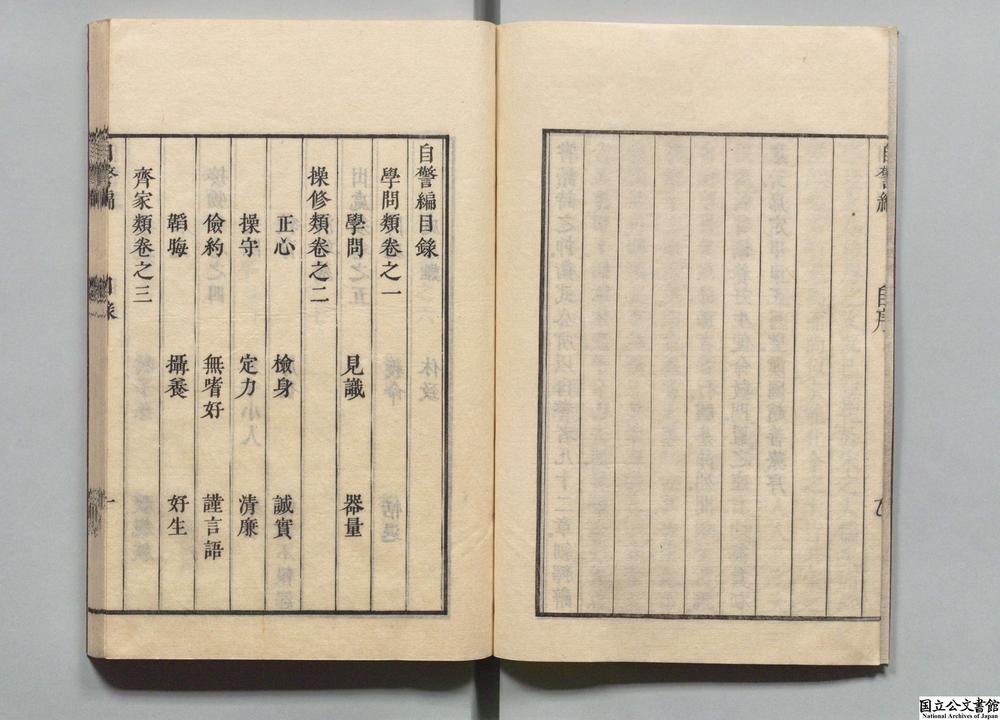 自序
自警編目錄
學問類卷之一
學問 見識 器量
操修類卷之二
正心 檢身 誠實
操守 定力 清廉
儉約 無嗜好 謹言語
韜晦 攝養 好生
齊家類卷之三
自警編 目錄 一
国立公文書館
National Archives of Japan